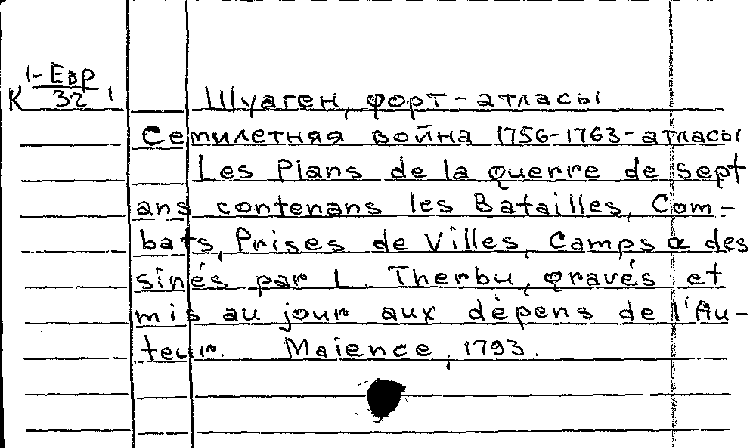 К 1-Евр
32
Шуаген, форт - атласы
Семилетняя война 1756-1763 - атласы
Les Plans de la guerre de sept
ans contenans les Batailles, Com-
bats, Prises de Villes, Camps & des
sinés par L. Therbu, gravés et
mis au jour aux dépens de l'Au-
teur. Maience, 1793.